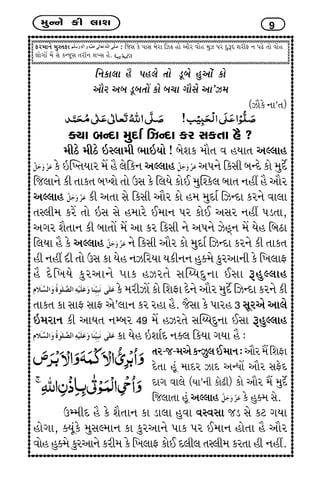 મુન્ને કી લાશ
9
ફરમાને મુસ્તફા صلى الله تعالى عليه واله وسلم : જિસ કે પાસ મેરા ઝિક્ર હો ઔર વોહ મુઝ પર દુરૂદ શરીફ ન પઢે તો વોહ
લોગોં મેં સે કન્જૂસ તરીન શખ્સ હૈ.
નિકાલા હૈ પહલે તો ડૂબે હુઓં કો
ઔર અબ ડૂબતોં કો બચા ગૌસે આ'ઝમ
(ઝૌકે ના'ત)
صَلُّوْا عَلَى الْحَبِيْب! صَلَّى اللهُ تَعَالٰى عَلٰى مُحَمَّد
ક્યા બન્દા મુર્દા ઝિન્દા કર સકતા હૈ ?
મીઠે મીઠે ઇસ્લામી ભાઇયો ! બેશક મૌત વ હયાત અલ્લાહ
عَزَّوَجَلَّ કે ઇખ્તિયાર મેં હૈ લેકિન અલ્લાહ عَزَّوَجَلَّ અપને કિસી બન્દે કો મુર્દે
જિલાને કી તાકત બખ્શે તો ઉસ કે લિયે કોઈ મુશ્કિલ બાત નહીં હૈ ઔર
અલ્લાહ عَزَّوَجَلَّ કી અતા સે કિસી ઔર કો હમ મુર્દા ઝિન્દા કરને વાલા
તસ્લીમ કરેં તો ઇસ સે હમારે ઈમાન પર કોઈ અસર નહીં પડતા,
અગર શૈતાન કી બાતોં મેં આ કર કિસી ને અપને ઝેહ્‌ન મેં યેહ બિઠા
લિયા હૈ કે અલ્લાહ عَزَّوَجَلَّ ને કિસી ઔર કો મુર્દા ઝિન્દા કરને કી તાકત
હી નહીં દી તો ઉસ કા યેહ નઝરિયા યકીનન હુક્મે કુરઆની કે ખિલાફ
હૈ દેખિયે કુરઆને પાક હઝરતે સય્યિદુના ઈસા રૂહુલ્લાહ
عَلٰى نَبِيِّنَا وَعَلَيْهِ الصَّلٰوةُ وَالسَّلَام કે મરીઝોં કો શિફા દેને ઔર મુર્દે ઝિન્દા કરને કી
તાકત કા સાફ સાફ એ'લાન કર રહા હૈ. જૈસા કે પારહ 3 સૂરએ આલે
ઇમરાન કી આયત નમ્બર 49 મેં હઝરતે સય્યિદુના ઈસા રૂહુલ્લાહ
عَلٰى نَبِيِّنَا وَعَلَيْهِ الصَّلٰوةُ وَالسَّلَام કા યેહ ઇર્શાદ નક્લ કિયા ગયા હૈ :
وَاُبْرِئُ الْاَكْمَهَ وَالْاَبْرَصَ
وَاُحْيِ الْمَوْتٰى بِاِذْنِ اللهِ
તર-જ-મએ કન્ઝુલ ઈમાન : ઔર મૈં શિફા
દેતા હૂં માદર ઝાદ અન્ધોં ઔર સફેદ
દાગ વાલે (યા'ની કોઢી) કો ઔર મૈં મુર્દે
જિલાતા હૂં અલ્લાહ عَزَّوَجَلَّ કે હુક્મ સે.
ઉમ્મીદ હૈ કે શૈતાન કા ડાલા હુવા વસ્વસા જડ સે કટ ગયા
હોગા, ક્યૂંકે મુસલ્માન કા કુરઆને પાક પર ઈમાન હોતા હૈ ઔર
વોહ હુક્મે કુરઆને કરીમ કે ખિલાફ કોઈ દલીલ તસ્લીમ કરતા હી નહીં.